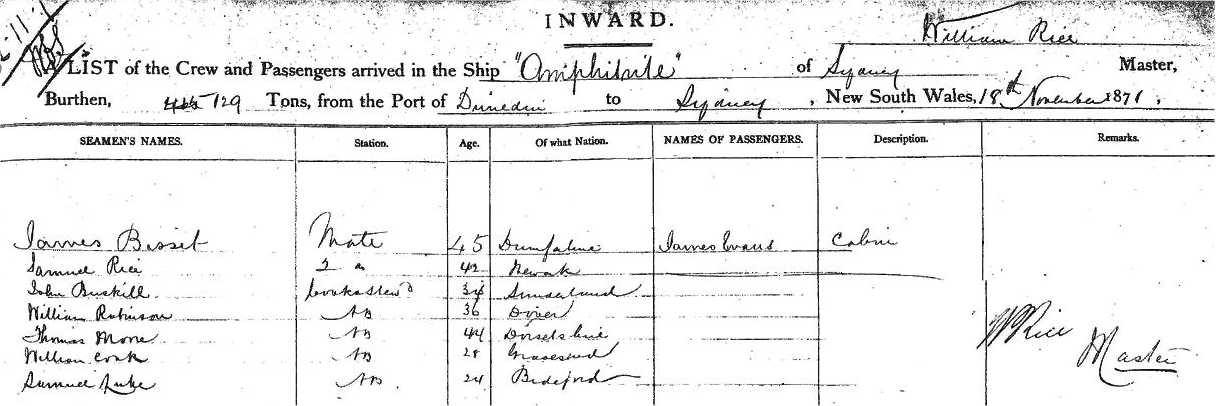 INWARD.
William Rice
A LIST of the Crew and Passengers arrived in the Ship "Amphitrite" of Sydney Master,
Burthen, 129 Tons, from the Port of Dunedin to Sydney, New South Wales, 18th November 1871,
SEAMEN'S NAMES. Station. Age. Of what Nation. NAMES OF PASSENGERS. Description. Remarks.
James Bisset Mate 45 Dumfaline James Evans Cabin
Samuel Rice 2 " 42 Newark
John Buskill Cook & Stewd 34 Sunderland
William Robinson AB 36 Dover
Thomas Moore AB 44 Dorsetshire
William Cook AB 28 Gravesend
Samuel Luke AB 24 Bideford
W Rice
Master